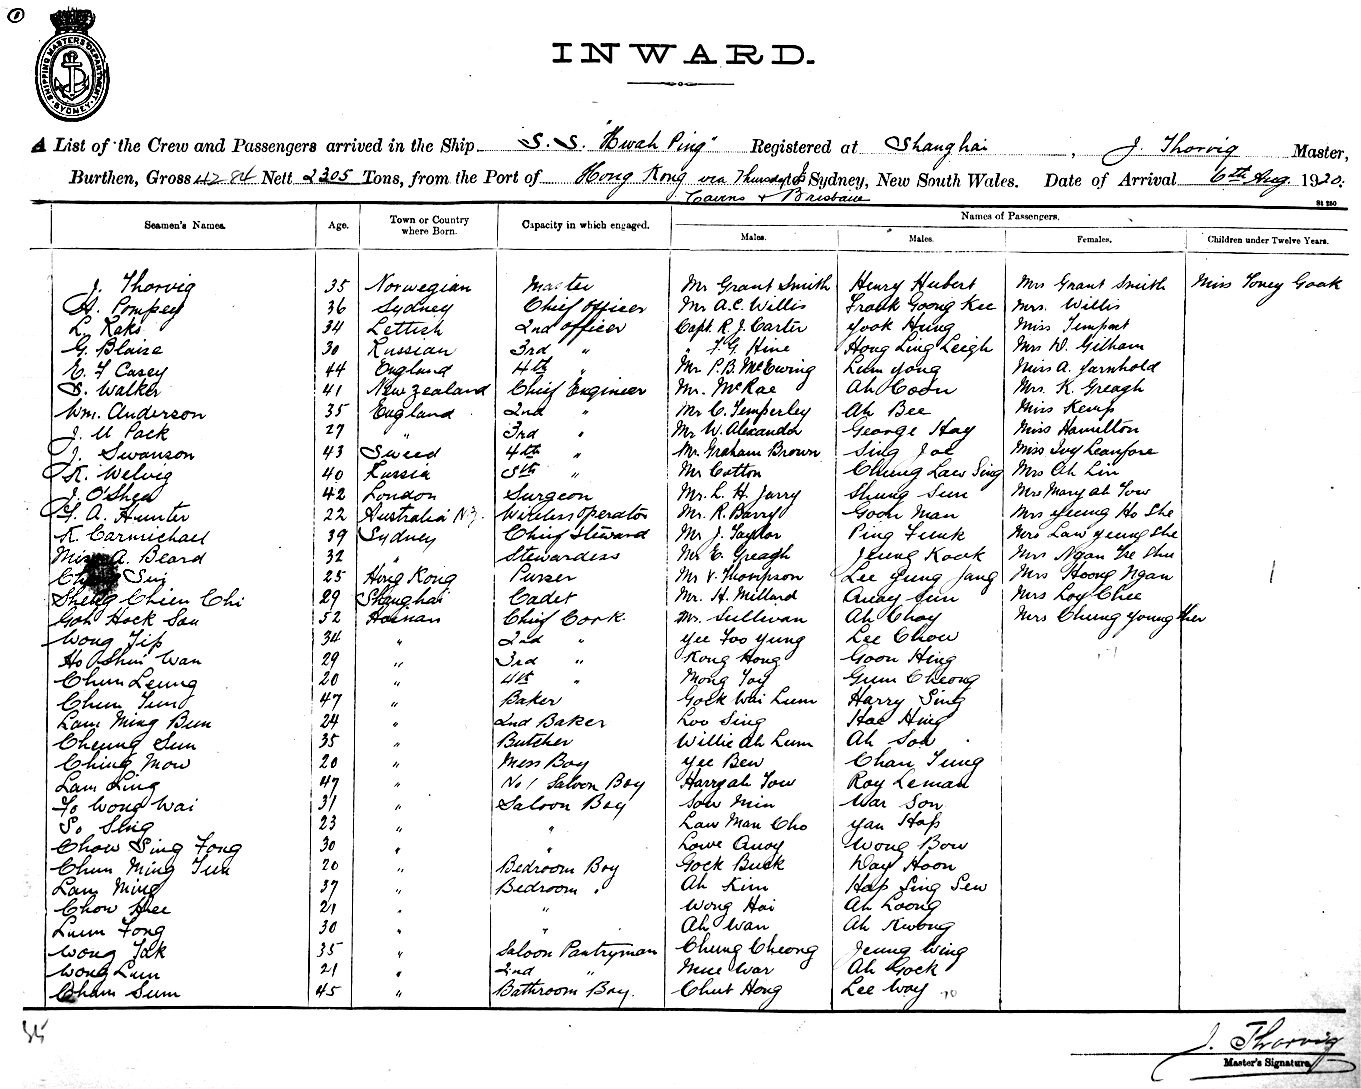 1
SHIPPING MASTERS DEPARTMENT
SYDNEY
INWARD.
A List of the Crew and Passengers arrived in the Ship S. S. "Hwah Ping" Registered at Shanghai, J. Thorvig Master,
Burthen, Gross 4284 Nett 2305 Tons, from the Port of Hong Kong via Thursday Is Sydney, New South Wales. Date of Arrival 6th Aug. 1920.
Cairns & Brisbane
Names of Passengers.
Seamen's Names. Age. Town or Country where Born. Capacity in which engaged. Males. Males. Females. Children under Twelve Years.
J. Thorvig 35 Norwegian Master Mr Grant Smith Henry Hubert Mrs Grant Smith Miss Toney Gook
A. Pompey 36 Sydney Chief Officer Mr A.C. Willis Frank Goong Kee Mrs. Willis
L. Raks 34 Lettish 2nd Officer Capt. R. J. Carter Yook Hung Miss
G. Blaise 30 Russian 3rd " " F. G. Hine Hong Ling Leigh Mrs W. Gilham
E. F Casey 44 England 4th " Mr P.B. McEwing Lum Yong Miss A. Yarnhold
S. Walker 41 New Zealand Chief Engineer Mr. McRae Ah Coon Mrs. K. Greagh
Wm. Anderson 35 England 2nd " Mr C. Temperley Ah Bee Miss Kemp
J. U Pack 27 " 3rd " Mr W. Alexander George Hay Miss Hamilton
J. Swanson 43 Sweed 4th " Mr. Graham Brown Sing Joe Miss Ivy
K. Welvig 40 Russia 5th " Mr Cotton Chung Law Sing Mrs Ah Lin
J. O'Shea 42 London Surgeon Mr. L. H. Jarry Shung Sun Mrs Mary ah Tow
G. A. Hunter 22 Australia NZ. Wireless Operator Mr. R. Barry Goon Man Mrs Yeung Ho She
K. Carmichael 39 Sydney Chief Steward Mr J. Taylor Ping Funk Mrs Law Yeung She
Miss A. Beard 32 " Stewardess Mr C. Greagh Jeung Kook Mrs Ngan Tse Shu
Sui 25 Hong Kong Purser Mr V. Thompson Lee Yung Jang Mrs Hoong Ngan
Sheng Chien Chi 29 Shanghai Cadet Mr. H. Millard Quay Sun Mrs Loy Chee
Goh Hock San 52 Hainan Chief Cook. Mr. Sullivan Ah Choy Mrs Chung Young
Wong Yip 34 " 2nd " Yee Foo Yung Lee Chow
Ho Shui Wan 29 " 3rd " Kong Hong Goon Hing
Chun Leung 20 " 4th " Mong Toy Gum Cheong
Chun Yun 47 " Baker Gock Wai Lum Harry Sing
Lam Ming Bun 24 " 2nd Baker Loo Sing Hoe Hing
Cheung Sun 35 " Butcher Willie ah Lum Ah Son
Ching Mow 20 " Mess Boy Yee Bew Chan Tung
Lam Ling 47 " No 1 Saloon Boy Harry ah Tow Roy Leman
Wong Wai 31 " Saloon Boy Sow Min War Son
So Sling 23 " " Law Man Cho Yan Hop
Chow Sing Fong 30 " " Lowe Quoy Wong Bow
Chun Ming Tun 20 " Bedroom Boy Gock Buck Way Hoon
Lam Ming 37 " Bedroom " Ah Kim Hop Sing Sew
Chow Hee 21 " " Wong Hoi Ah Loong
Luun Fong 30 " " Ah Wan Ah Kwong
Wong Tak 35 " Saloon Pantryman Chung Cheong Jeung Wing
Wong Lum 21 " 2nd " Mue War Ah Gock
Cham Sum 45 " Bathroom Boy. Chut Hong Lee Way 70
35
J. Thorvig
Master's Signature.